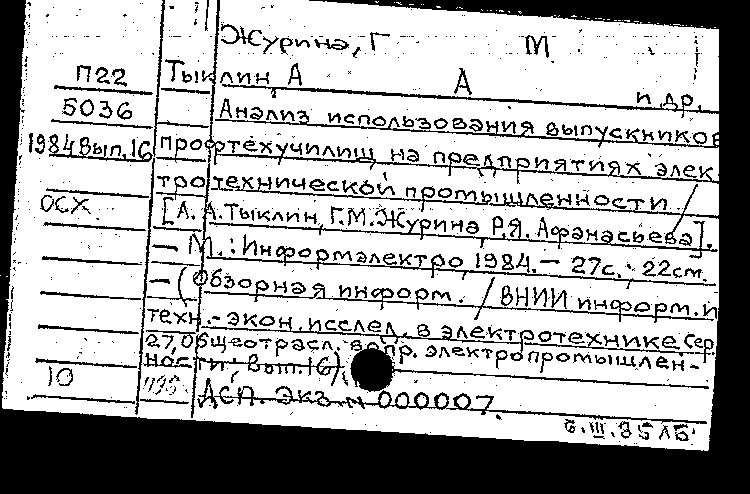 Журина, Г М
П22 Тыклин, А А и др.
5036 Анализ использования выпускников
1984 Вып.16 профтехучилищ на предприятиях элек-
тротехнической промышленности /
ОСХ [А.А.Тыклин, Г.М.Журина, Р.Я. Афанасьева].
— М.: Информэлектро, 1984. — 27с.; 22см.
— (Обзорная информ. / ВНИИ информ. и
техн.-экон. исслед. в электротехнике Сер.
27, Общеотрасл. вопр. электропромышлен-
ности; Вып.16).
10 ДСП. Экз. N 000007.
6.III.85 ЛБ